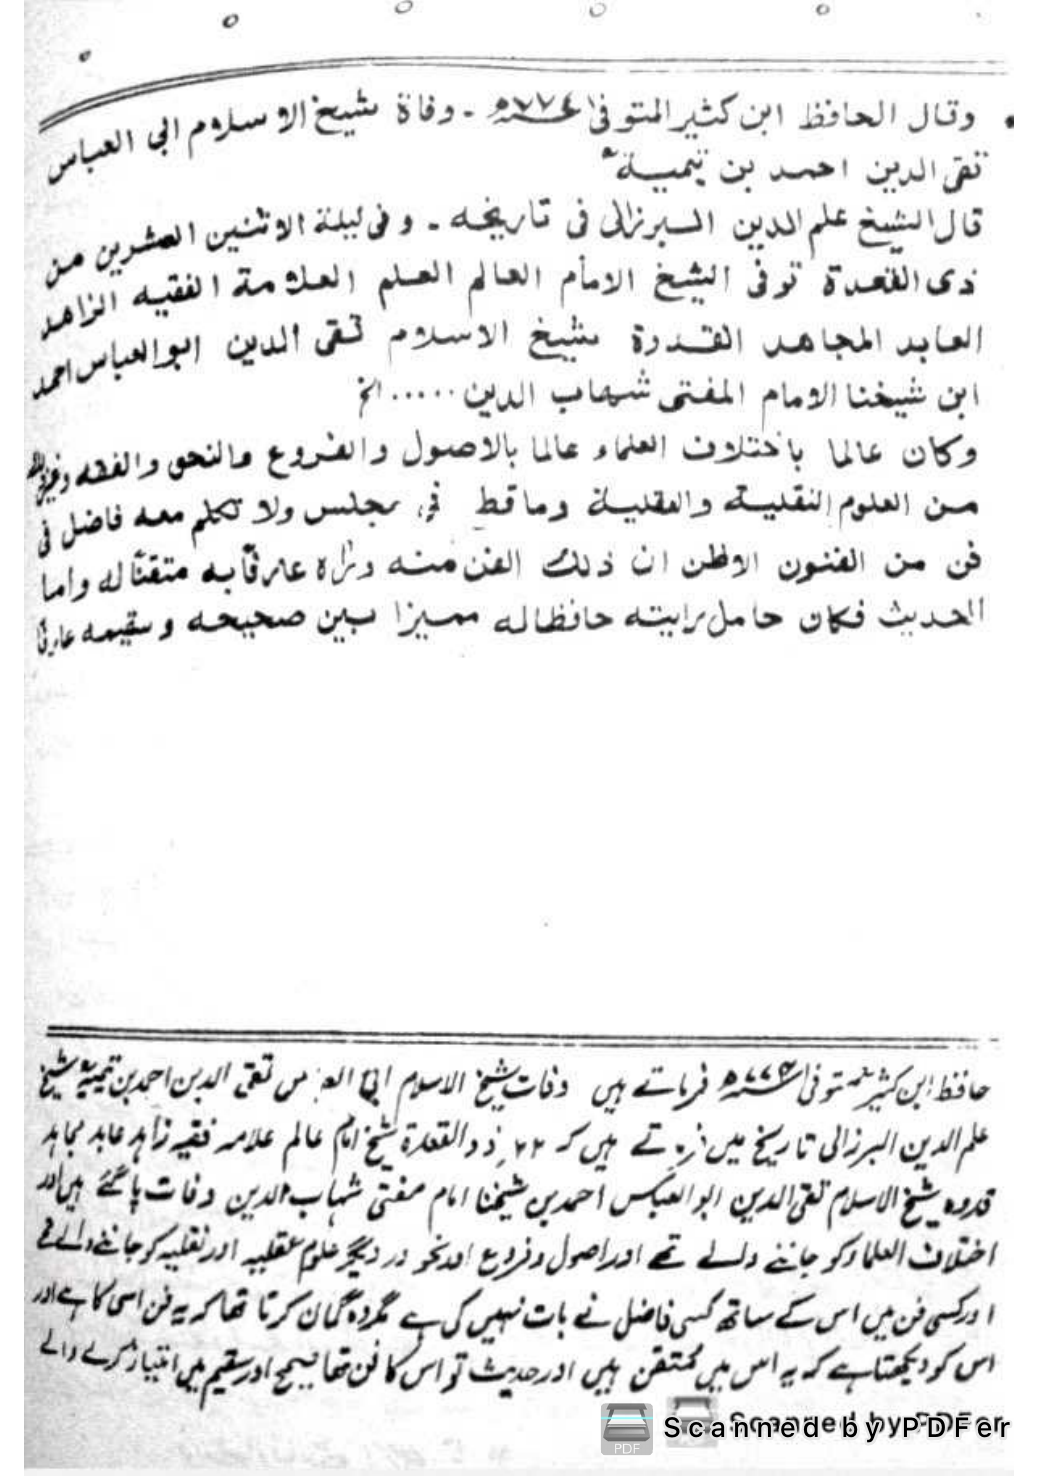 وقال الحافظ ابن كثير المتوفى ٧٧٤ھ ـ وفاة شيخ الاسلام ابى العباس
تقى الدين احمد بن تيمية
قال الشيخ علم الدين البرزالى فى تاريخه ـ وفى ليلة الاثنين العشرين من
ذى القعدة توفى الشيخ الامام العالم العلم العلامة الفقيه الزاهد
العابد المجاهد القدوة شيخ الاسلام تقى الدين ابو العباس احمد
ابن شيخنا الامام المفتى شهاب الدين ..... الخ
وكان عالما باختلاف العلماء عالما بالاصول والفروع والنحو والفقه
من العلوم النقلية والعقلية وما قط فى مجلس ولا تكلم معه فاضل فى
فن من الفنون الا ظن ان ذلك الفن منه وراه عارفا به متقنا له واما
الحديث فكان حامل رايته حافظا له مميزا بين صحيحه وسقيمه عارفا
حافظ ابن کثیر متوفی ٧٧٤ھ فرماتے ہیں وفات شیخ الاسلام ابی تقی الدین احمد بن تیمیہ شیخ
علم الدین البرزالی تاریخ میں تے ہیں کہ ذوالقعدة شیخ امام عالم علامہ فقیہ زاہد عابد مجاہد
قدوہ شیخ الاسلام تقی الدین ابوالعباس احمد بن شیخنا امام مفتی شہاب الدین وفات پا گئے ہیں اور
اختلاف العلماء کو جاننے والے تھے اور اصول وفروع اور نحو در دیگر علوم عقلیہ اور نقلیہ کو جاننے والے تھے
اور کسی فن میں اس کے ساتھ کسی فاضل نے بات نہیں کی ہے مگر وہ گمان کرتا تھا کہ یہ فن اسی کا ہے اور
اس کو دیکھتا ہے کہ یہ اس میں متقن ہیں اور حدیث تو اس کا فن تھا صحیح اور سقیم میں امتیاز کرنے والے
Scanned by PDFer
Scanned by PDFer
PDF